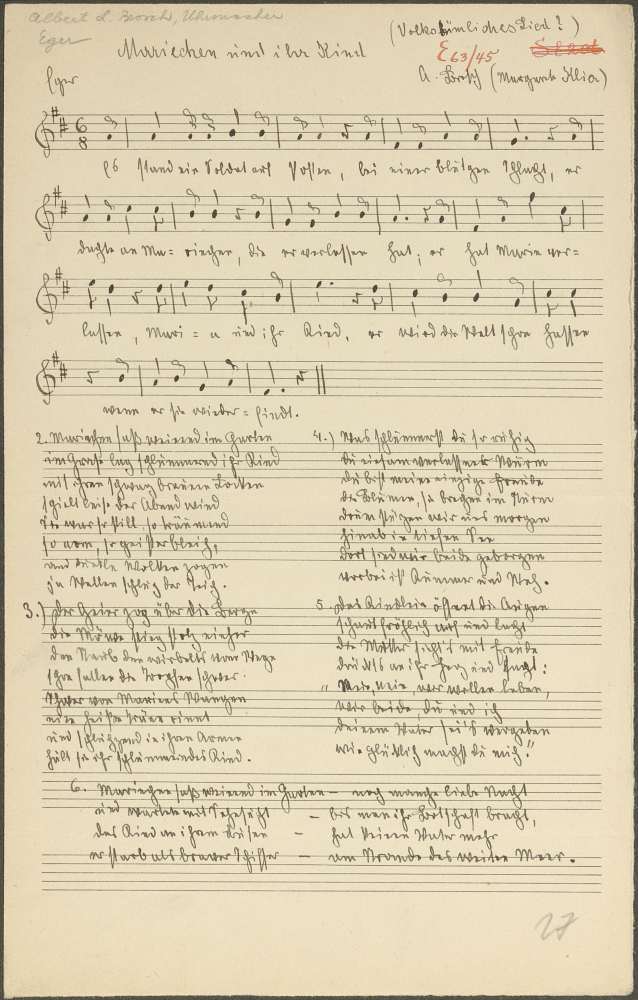 Albert L. Brosch, Uhrmacher
Eger
(Volkstümliches Lied?)
Mariechen und ihr Kind
E 63/45
Eger
A. Brosch (Margarete Klia)
6
8
Es stand ein Soldat auf Posten, bei einer blut'gen Schlacht, er
dachte an Ma = riechen, die er verlassen hat; er hat Marie ver=
lassen, Mari = a und ihr Kind, er wird die Welt schon hassen
wenn er sie wieder = findt.
2. Mariechen saß weinend im Garten
im Grase lag schlummernd ihr Kind
mit ihren schwarz braunen Locken
spielt leise der Abendwind
Sie war so still, so träumend
so arm, so geisterbleich,
und dunkle Wolken zogen
ja Wellen schlug der Teich.
3.) Der Geier zog über die Berge
die Möwe stieg stolz einher
den Staub den wirbelts vom Wege
schon fallen die Tropfen schwer.
Schwer von Mariens Wangen
eine heiße Träne rinnt
und schluchzend in ihren Armen
hält sie ihr schlummerndes Kind.
4.) Was schlummerst du so ruhig
du einsam verlassner Wurm
du bist meine einzige Freude
die Blumen, sie brechen im Sturm
drum stürzen wir uns morgen
hinab in tiefen See
dort sind wir beide geborgen
vorbei ist Kummer und Weh.
5. Das Kindlein öffnet die Augen
schaut fröhlich auf und lacht
die Mutter sieht's mit Freude
drückts an ihr Herz und sagt:
„Nein, nein, wir wollen leben,
wir beide, du und ich
deinem Vater sei's vergeben
wie glücklich machst du mich!"
6. Mariechen saß weinend im Garten – noch manche liebe Nacht
und wartet mit Sehnsucht – bis man ihr Botschaft bracht,
das Kind an ihrem Busen – hat keinen Vater mehr
er starb als braver Schiffer – am Strande des weiten Meer.
27